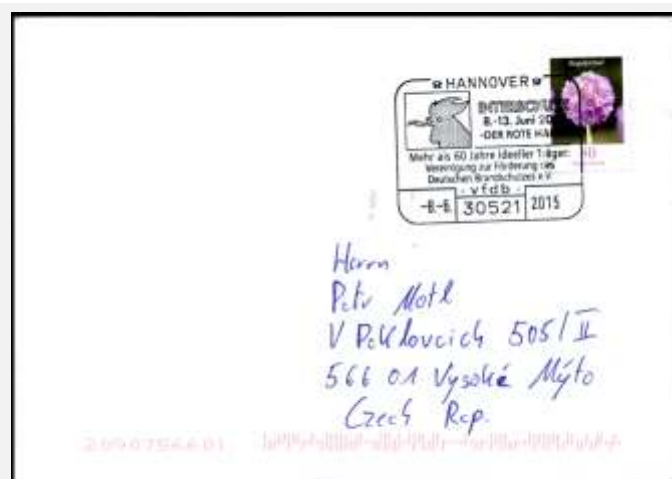 HANNOVER
INTERSCHUTZ
8.-13. Juni 20
-DER ROTE HA
Mehr als 60 Jahre ideeller Träger:
Vereinigung zur Förderung des
Deutschen Brandschutzes e.V.
- vfdb -
-8.-6. 30521 2015
Herrn
Petr Motl
V Peklovcích 505/II
566 01 Vysoké Mýto
Czech Rep.